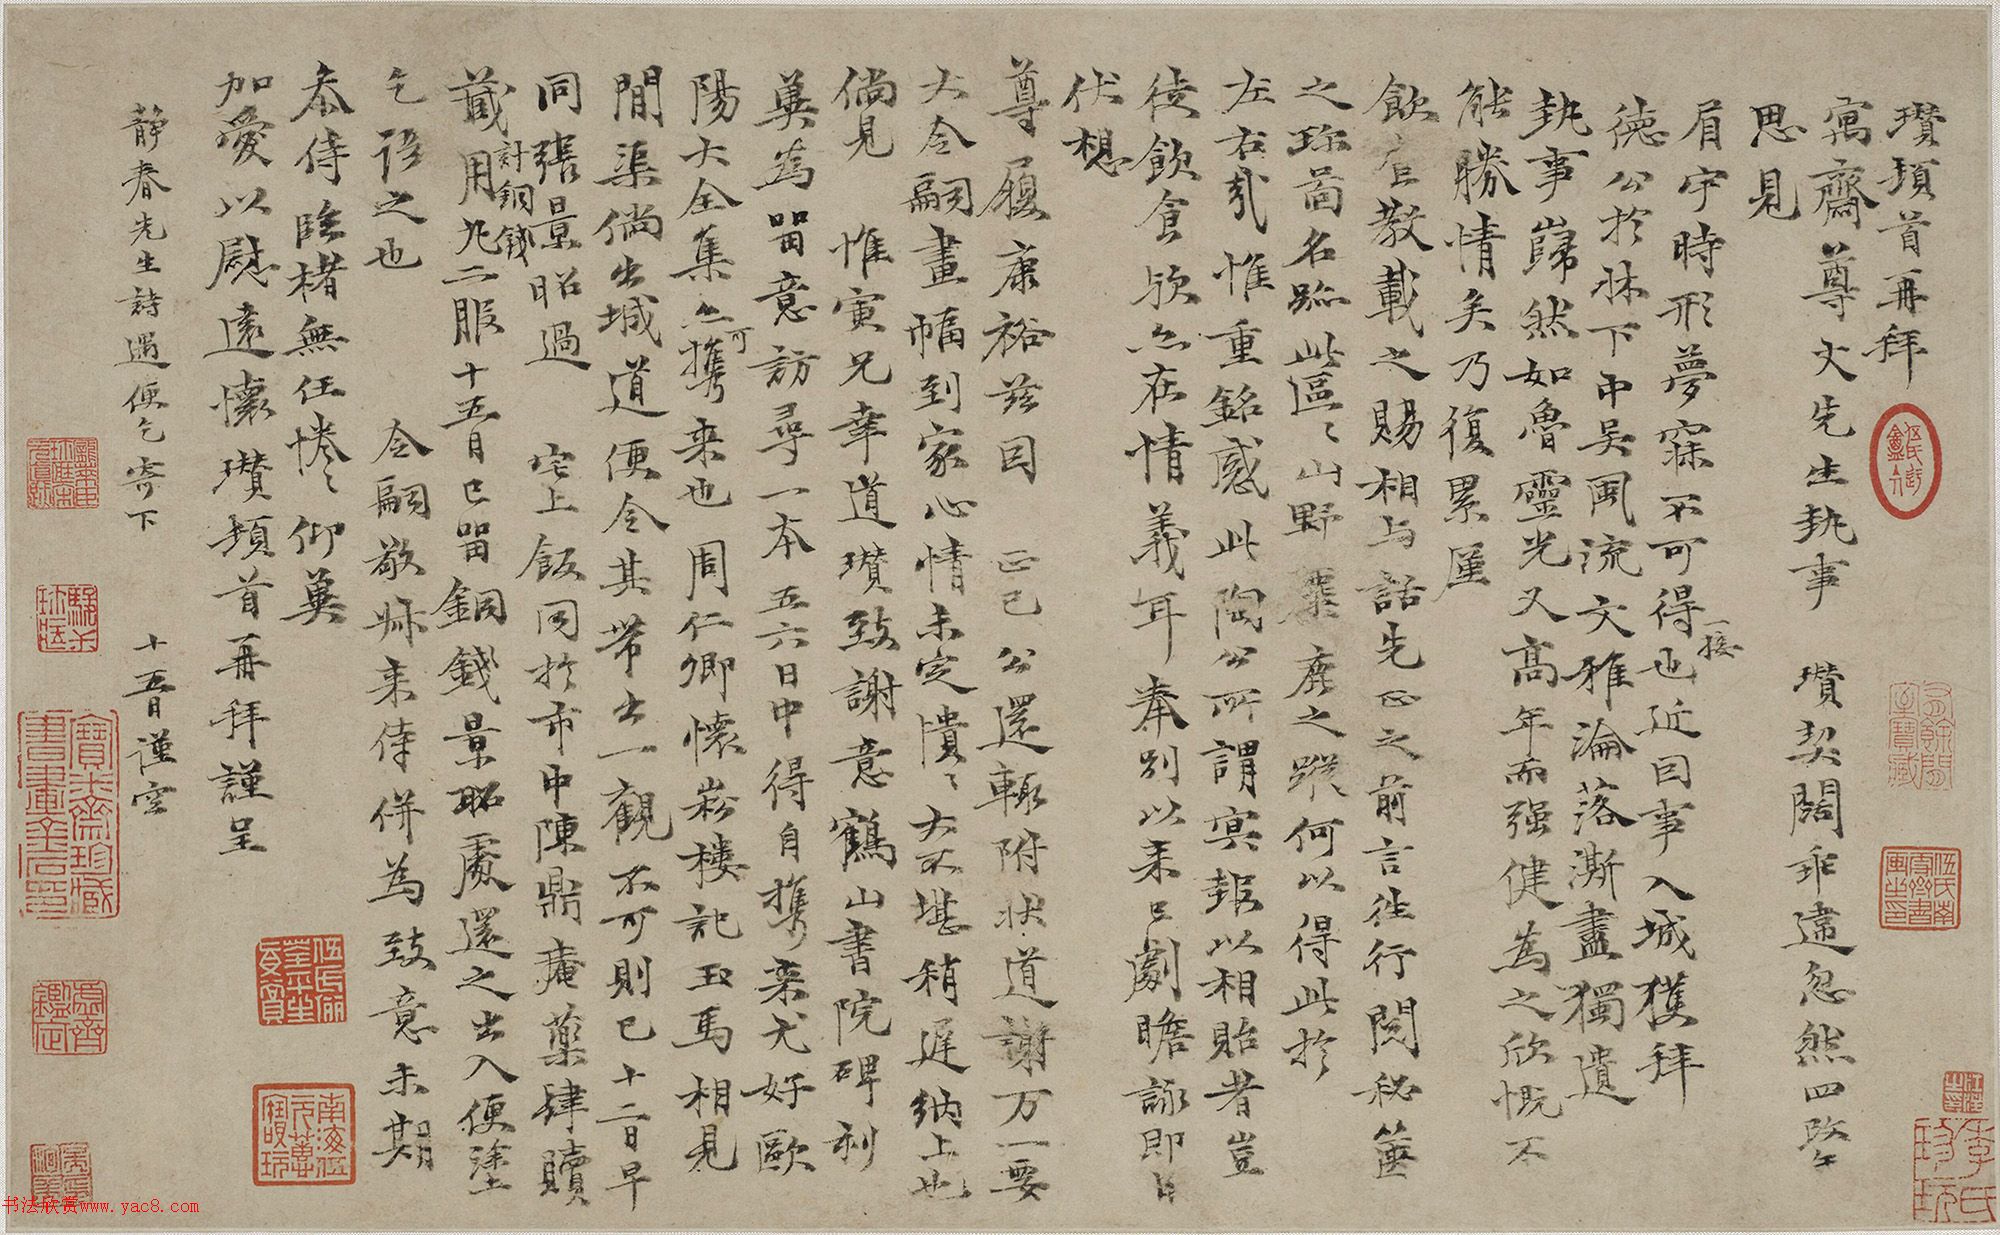 瓚頓首再拜
寓齋尊丈先生執事　瓚契闊乖違忽然四路
思見
眉宇時形夢寐不可得一接也近因事入城獲拜
德公於牀下中吳風流文雅淪落澌盡獨遺
執事巋然如魯靈光又高年而强健為之欣慨不
能勝情矣乃復累厪
飲食教載之賜相與話先正之前言往行閱秘篋
之珍圖名跡此區〻山野麋鹿之蹤何以得此於
左右哉惟重銘感此陶公所謂冥報以相貽者豈
徒飲食欣然在情義耳奉別以来已劇瞻詠即日
伏想
尊履康裕茲因　正己公還輒附狀道謝万一要
大令嗣畫幅到家心情未定憒〻太不堪稍遲納上也
倘見　惟寅兄幸道瓚致謝意鶴山書院碑刻
冀為留意訪尋一本五六日中得自攜来尤好歐
陽大全集亦可攜来也周仁卿懷崧樓記玉馬相見
間渠倘出城道便令其帶出一觀不可則已十二日早
同張景昭過　宅上飯因於市中陳鼎庵藥肆贖
葴用丸二服計銅錢十五百已留銅錢景昭處還之出入便塗
乞語之也　令嗣敬姊来侍併為致意未期
叅侍臨楮無任惓〻仰冀
加愛以慰遠懷瓚頓首再拜謹呈
靜春先生詩遇便乞寄下　十五日謹空
书法欣赏www.yac8.com